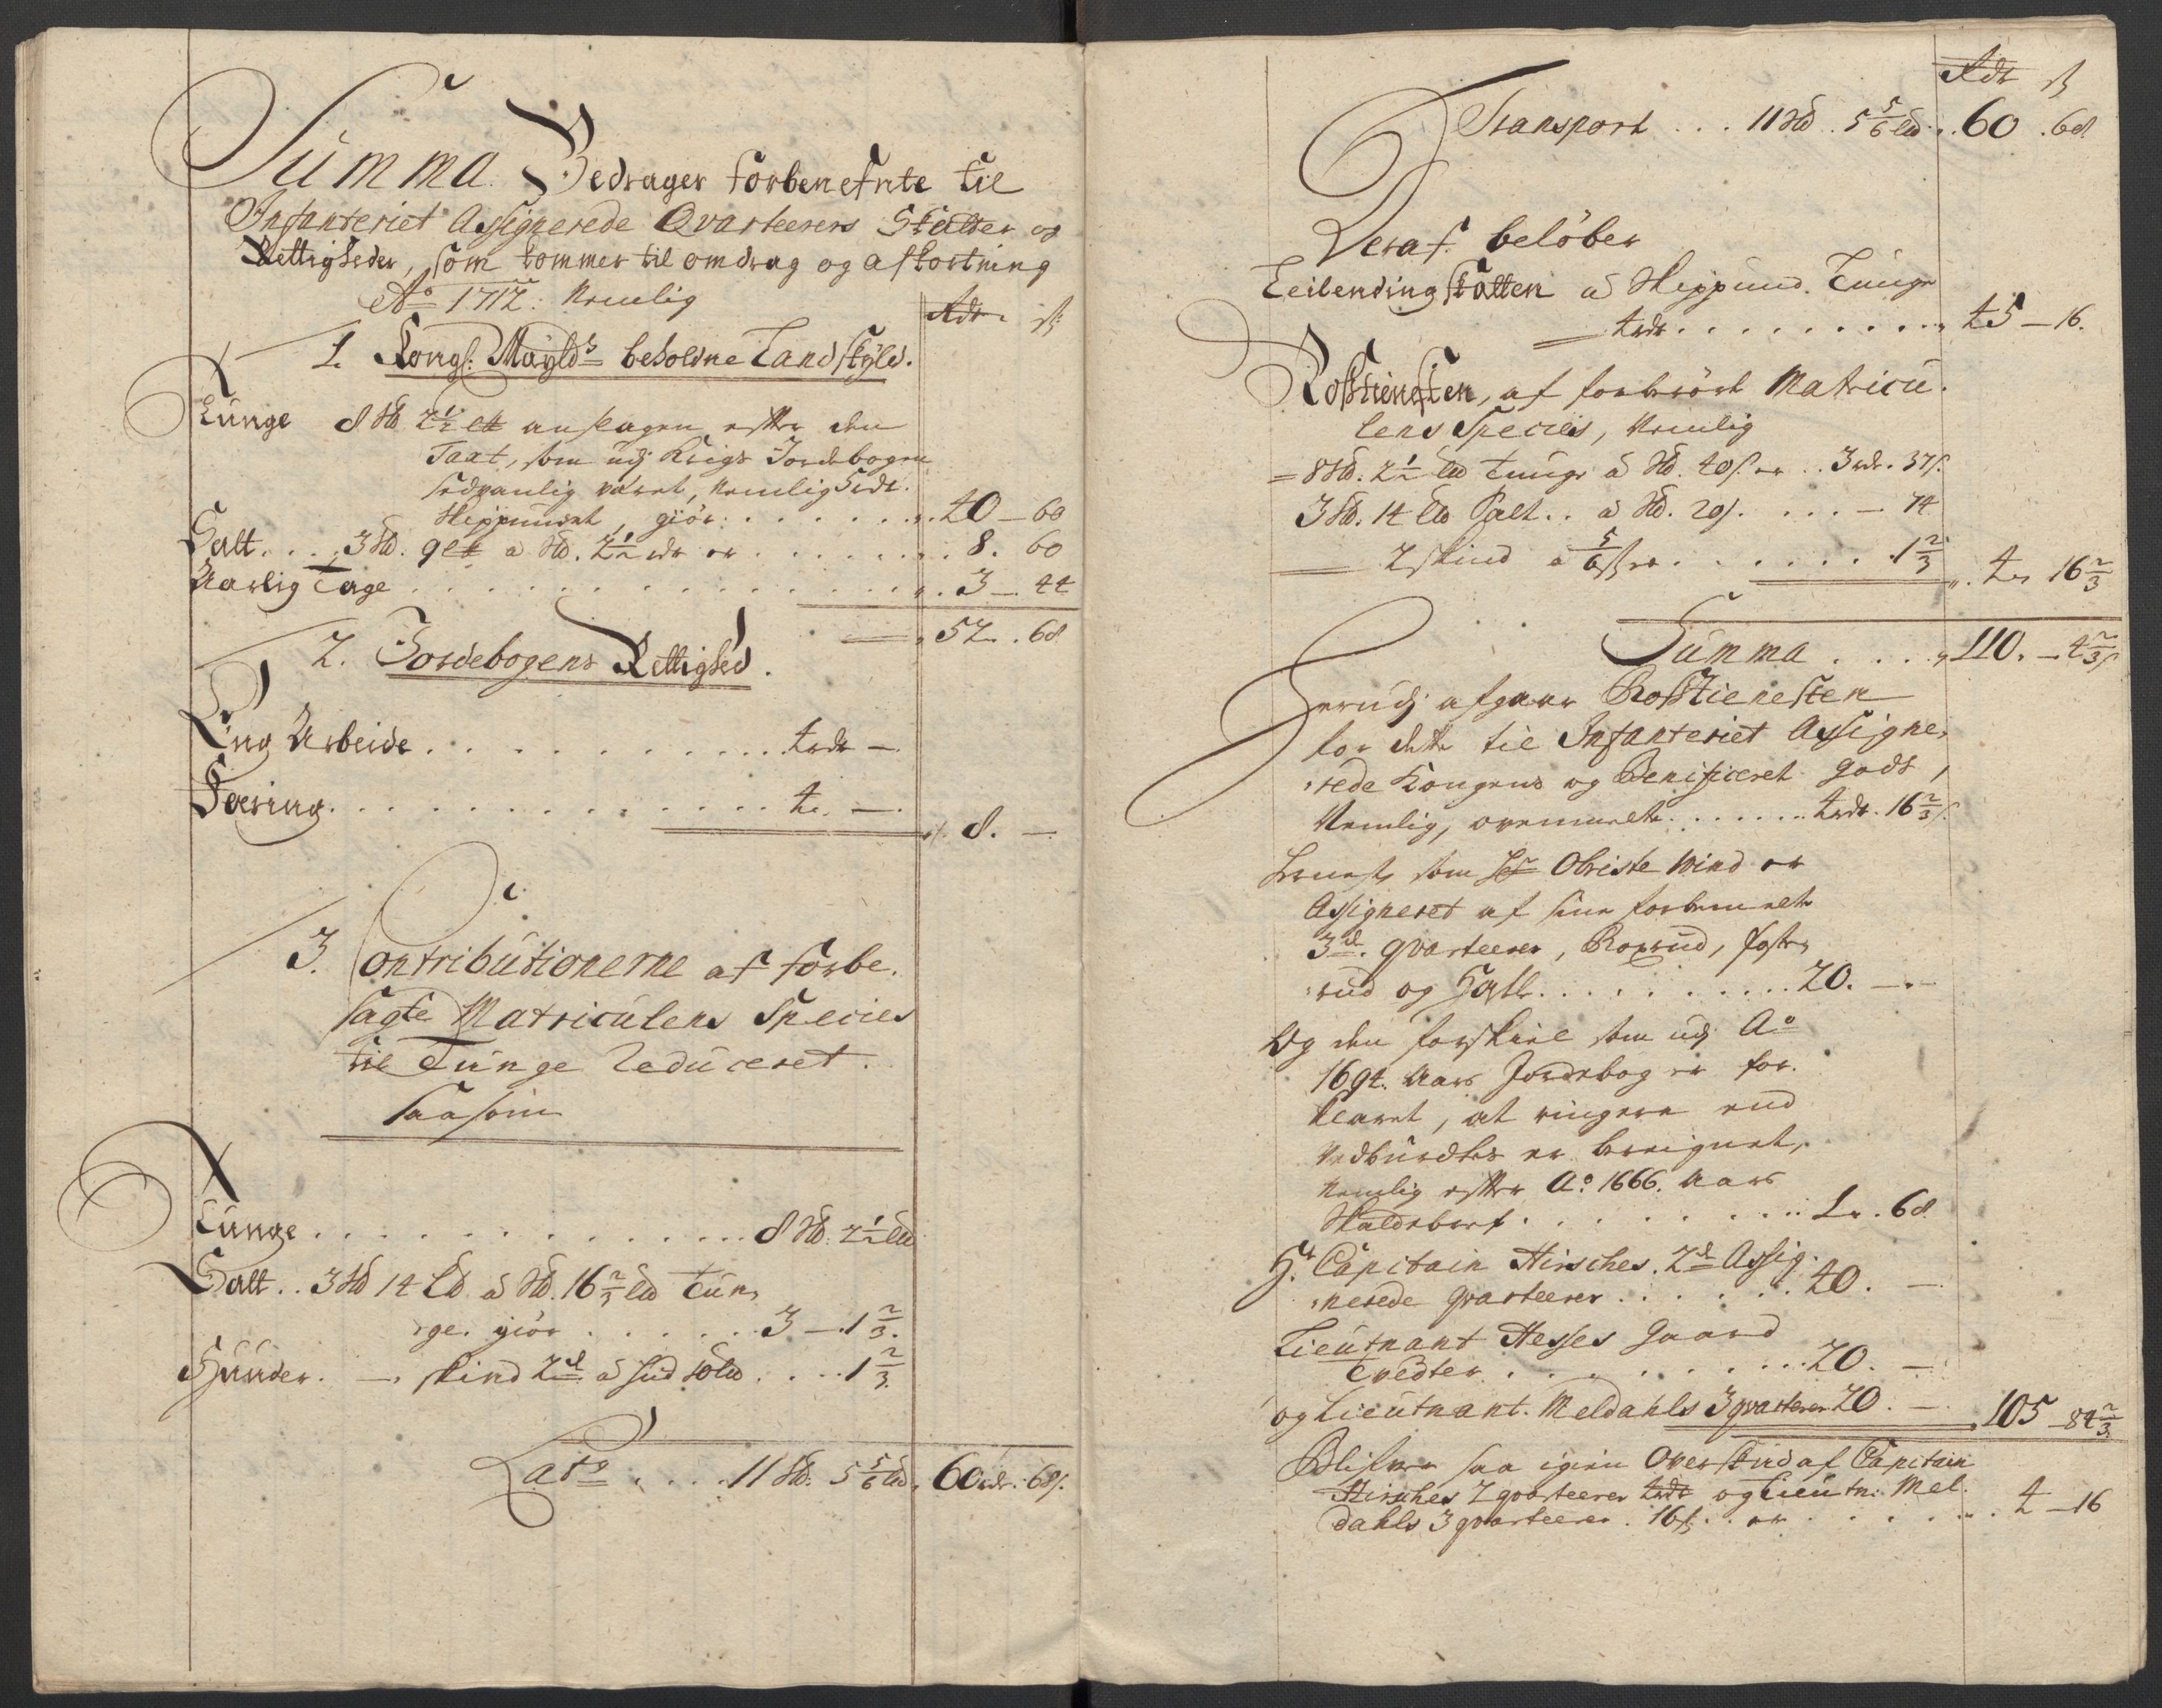 Summa Bedrager forbenefnte til
Infanteriet Assignerede Qvarteerers Skatter og
Rettigheder, som kommer til omdrag og afkortning
Ao 1712: Nemlig
Rdr ß
1. Kongl: Mayldz beholdne Landskyld.
Tunge 8 Sd 2½ ld anslagen efter den
Taxt, som udj Krigs Jordebogen
sedvanlig været, Nemlig 5 rdr.
Skippundet, giör: . . . . . . 40 – 60
Salt . . . 3 Sd. 9 ld a Sd. 2½ rdr er . . . . . . 8. 60
Aarlig Tage . . . . . . 3 – 44
52 . 68
2. Jordebogens Rettighed.
Ring Arbeide . . . . . . 4 rdr –
Foering . . . . . . 4. –
8. –
3. Contributionerne af forbe.
sagte Matriculens Species
til Tunge Reduceret.
saasom
Tunge . . . . . . 8 Sd. 2½ ld
Salt . . 3 Sd 14 ld a Sd. 16⅔ ld Tun,
ge. giör . . . . . . 3 – 1⅔.
Huuder. –. skind 2de a hud 10 ld . . . . 1⅔
Lats . . . . 11 Sd. 5⅚ ld. 60 rdr. 68 ß.
Rdr ß
Transport . . . 11 Sd . . 5⅚ ld . . 60 . 68
Deraf beløber
Leilending skatten a Skippund. Tunge
4 rdr . . . . . . 45 – 16.
Rosstienesten, af forberört Matricu.
lens Species, Nemlig
8 Sd. 2½ ld Tunge a Sd. 40 ß. er . . 3 rdr. 37 ß.
3 Sd. 14 ld Salt . . a Sd. 20 ß. . . . – 74
2 skind a ⅚ ß er . . . . . . 1⅔
4. 16⅔
Summa . . . 110. – 4⅔ ß
Herudj afgaar Rosstienesten
for dette til Infanteriet Assigne,
rede Kongens og Benificeret gods,
Nemlig, ovenmelte . . . . . . 4 rdr. 16⅔ ß.
som Hr Obriste Wind er
Assigneret af sine forbemelte
3de. qvarteerer, Roxrud, foster
rud og . . . . . . 20. –
Og den forskiel som udj Ao
1694. Aars Jordebog er for.
klaret, at ringere end
vedburdtes er bereignet,
Nemlig efter Ao: 1666. Aars
. . . . . . 1. 68
Hr. Capitain Hirsches. 2de Assig.
nerede qvarteerer . . . . . . 40. –
Lieutnant Hesses gaard
Tvedter . . . . . . 20. –
og Lieutnant. Meldahls 3 qvarterer 20. –
105 – 84⅔
Blifver saa igien Overskud af Capitain
Hirsches 2 qvarteerer 4 rdr og Lieutn: Mel.
dahls 3 qvarteerer. 16 ß . . er . . . . . . 4 – 16